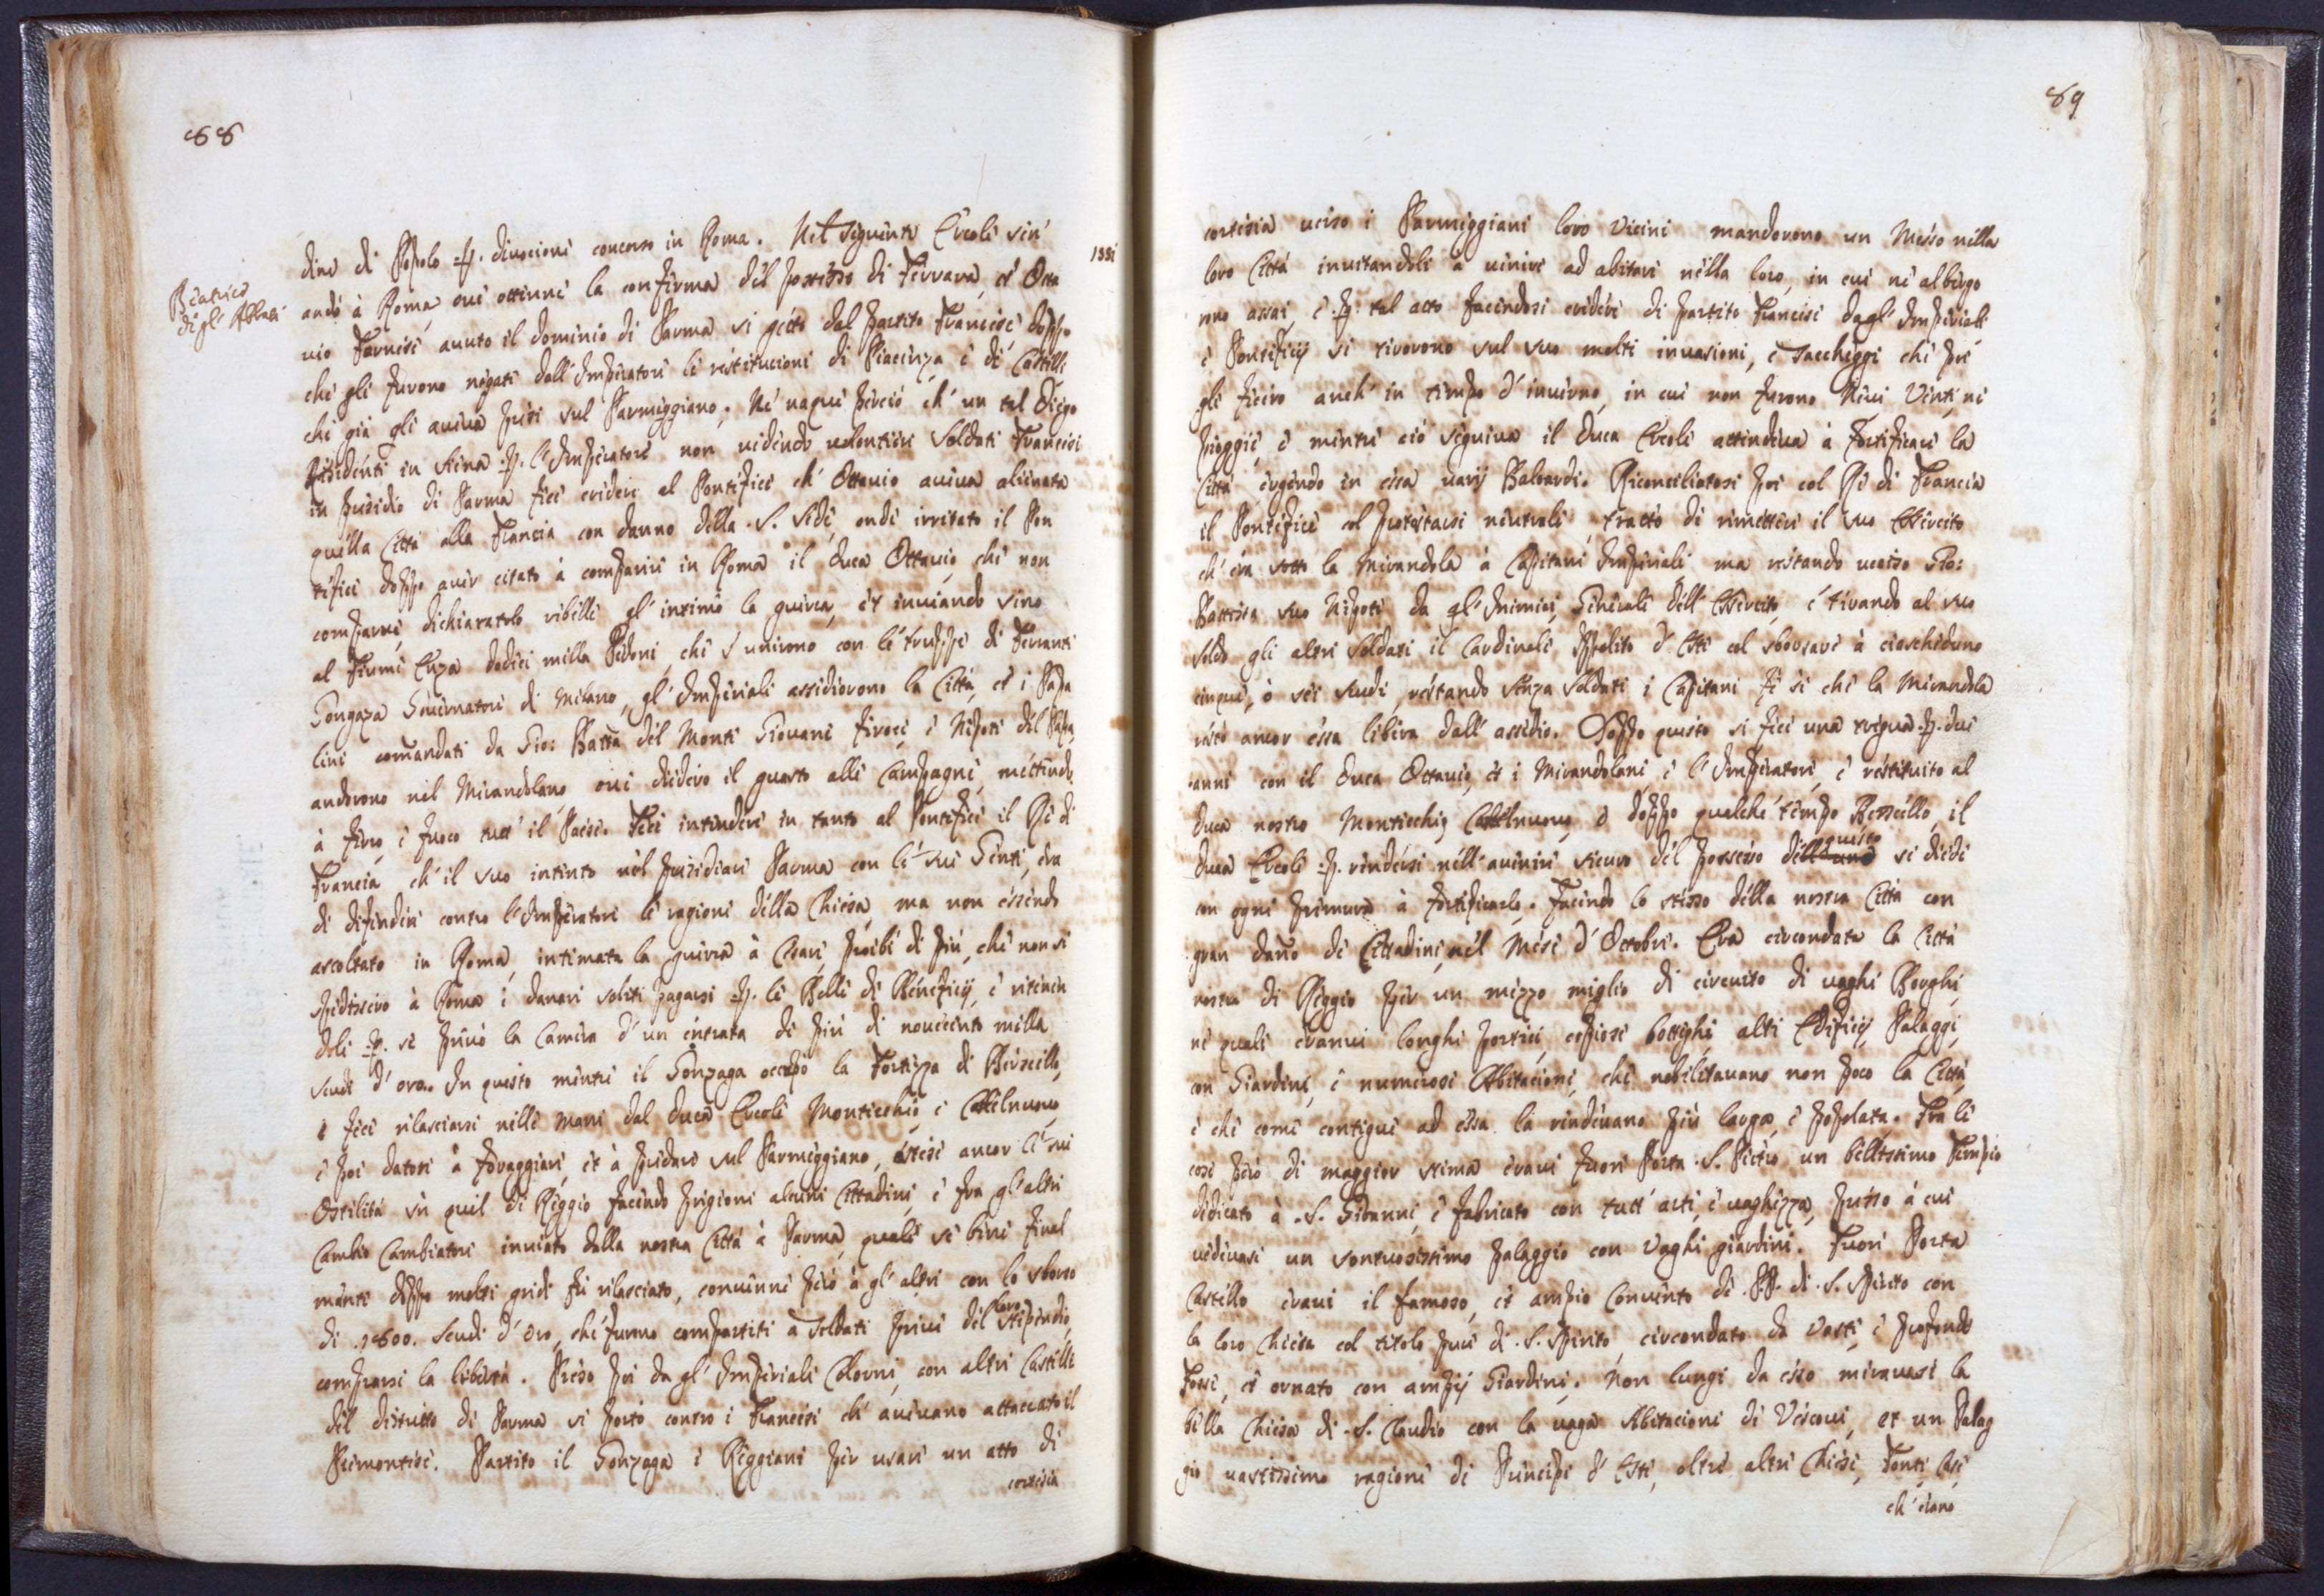 88
Beatrice
degl' Abbati
dine di Popolo p. divocione concorso in Roma. Nel seguente Ercole sen'
1551
andò à Roma, oue ottenne la confirma del possesso di Ferrara, et Otta
uio Farnese auuto il dominio di Parma si gettò dal partito Francese doppo
che gli furono negati dall' Imperatore le restitucioni di Piacenza e di Castelli
che già gli aueua presi sul Parmeggiano. Ne naque perciò ch' un tal Diego
Residente in Siena p. l'Imperatore non uedendo uolontieri Soldati Francesi
in presidio di Parma fece credere al Pontefice ch' Ottauio aueua alienata
quella Città alla Francia con danno della S. Sede, onde irritato il Pon
tefice doppo auer citato à comparire in Roma il Duca Ottauio, che non
comparue, dichiaratolo ribelle gl' intimò la guerra, et inuiando sino
al Fiume Enza dodeci milla Pedoni, che s' unirono con le truppe di Ferrante
Gongaza Gouernatore di Milano, gl' Imperiali assediorono la Città, et i Papa
lini comandati da Gio: Batta del Monte Giouane feroce, e Nipote del Papa,
andorono nel Mirandolano, oue diedero il guasto alle Campagne, mettendo
à ferro, e fuoco tutt' il Paese. Fece intendere in tanto al Pontefice il Rè di
Francia, ch' il suo intento nel presidiare Parma con le sue Genti, era
di difendere contro l'Imperatore le ragioni della Chiesa, ma non essendo
ascoltato in Roma, intimata la guerra à Cesare, proibì di più, che non si
spedissero à Roma i danari soliti pagarsi p. le Bolle di Beneficij, e ritenen
doli p. se priuò la Camera d' un entrata di più di nouecento milla
scudi d' oro. In questo mentre il Gonzaga occupò la Fortezza di Berscello,
e fece rilasciarsi nelle mani dal Duca Ercole Montecchio, e Castelnuouo
e poi datosi à foraggiare, et à predare sul Parmeggiano, stese ancor le sue
Ostilità sù quel di Reggio facendo prigioni alcuni Cittadini, e fra gl' altri
Cambio Cambiatori inuiato dalla nostra Città à Parma, quale se bene final
mente doppo molte gride fù rilasciato, conuenne però à gl' altri con lo sborso
di 1800. Scudi d' Oro, che furno compartiti a Soldati priui del loro Stipendio,
comprarsi la libertà. Preso poi da gl' Imperiali Colorno, con altri Castelli
del distretto di Parma si portò contro i Francesi ch' aueuano attaccato il
Peimontese. Partito il Gonzaga i Reggiani per usare un atto di
cortesia
89
cortesia uerso i Parmeggiani loro Vicini mandorono un Messo nella
loro Città inuitandoli à uenire ad abitare nella loro, in cui ne albergo
rono assai, e p. tal atto facendosi credere di partito Francese dagl' Imperiali
e Pontificij si tirorono sul suo molte inuasioni, e saccheggi che poi
gli fecero anch' in tempo d' inuerno, in cui non furono Neui Venti, ne
pioggie, e mentre ciò seguiua il Duca Ercole attendeua à fortificare la
Città ergendo in essa uarij Baloardi. Riconciliatosi poi col Rè di Francia
il Pontefice col protestarsi neutrale, trattò di rimettere il suo Essercito
ch' era sotto la Mirandola à Capitani Imperiali, ma restando ucciso Gio:
Battista suo Nipote da gl' Inimici, Generale dell' Essercito, e tirando al suo
soldo gli altri Soldati il Cardinale Ippolito d' Este col sborsare à ciascheduno
cinque, ò sei scudi, restando senza Soldati i Capitani fè sì che la Mirandola
restò ancor essa libera dall' assedio. Doppo questo si fece una tregua p. due
anni con il Duca Ottauio, et i Mirandolani, e l' Imperatore, e restituito al
Duca nostro Montecchio, Castelnuouo, e doppo qualche tempo Berscello, il
Duca Ercole p. rendersi nell' auenire sicuro del possesso di questo si diede
con ogni premura à fortificarlo. Facendo lo stesso della nostra Città con
gran dano di Cittadini, nel Mese d' Ottobre. Era circondata la Città
nostra di Reggio per un mezzo miglio di circuito di uaghi Borghi,
ne quali eranui longhi portici, copiose botteghe, alti Edificij, Palaggi,
con Giardini, e numerose Abitacioni, che nobilitauano non poco la Città,
e che come contigue ad essa la rendeuano più larga, e popolata. Fra le
cose però di maggior stima eraui fuori Porta S. Pietro un bellissimo Tempio
dedicato à S. Giouanni, e fabricato con tutt' arte, e uaghezza, presso à cui
uedeuasi un sontuosissimo palaggio con Vaghi giardini. Fuori Porta
Castello eraui il famoso, et ampio Conuento di PP. di S. Spirito con
la loro Chiesa col titolo pure di S. Spirito, circondato da Vaste, e profonde
Fosse, et ornato con ampij Giardini. Non lungi da esso mirauasi la
bella Chiesa di S. Claudio con la uaga Abitacione di Vescoui, et un Palag
gio uastissimo ragione di Principi d' Este, oltre altre Chiese, Fonti, Case
ch' erano